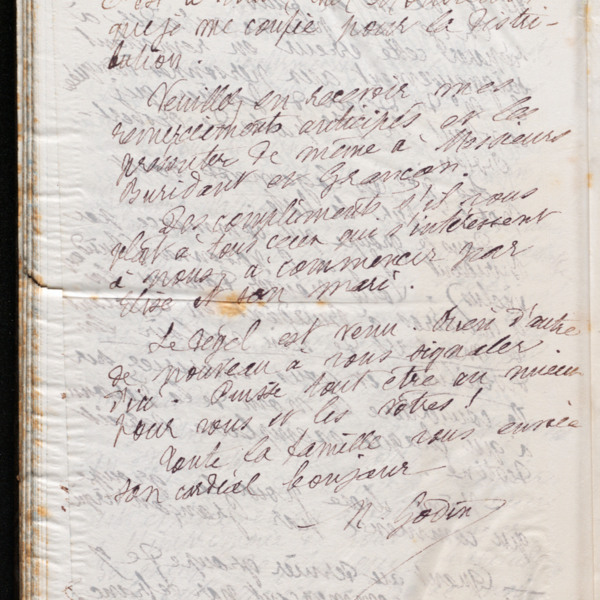 que je me confie pour la distri-
bution.
Veuillez en recevoir mes
remerciements anticipés et les
présenter de même à Messieurs
Buridant et Grancon.
Des compliments, s'il vous
plait à tous ceux qui s'intéressent
à nous, à commencer par
Elise et son mari.
Le dégel est venu. Rien d'autre
de nouveau à vous signaler
d'ici. Puisse tout être au mieux
pour vous et les vôtres !
Toute la famille vous envoie
son cordial bonjour
N Godin